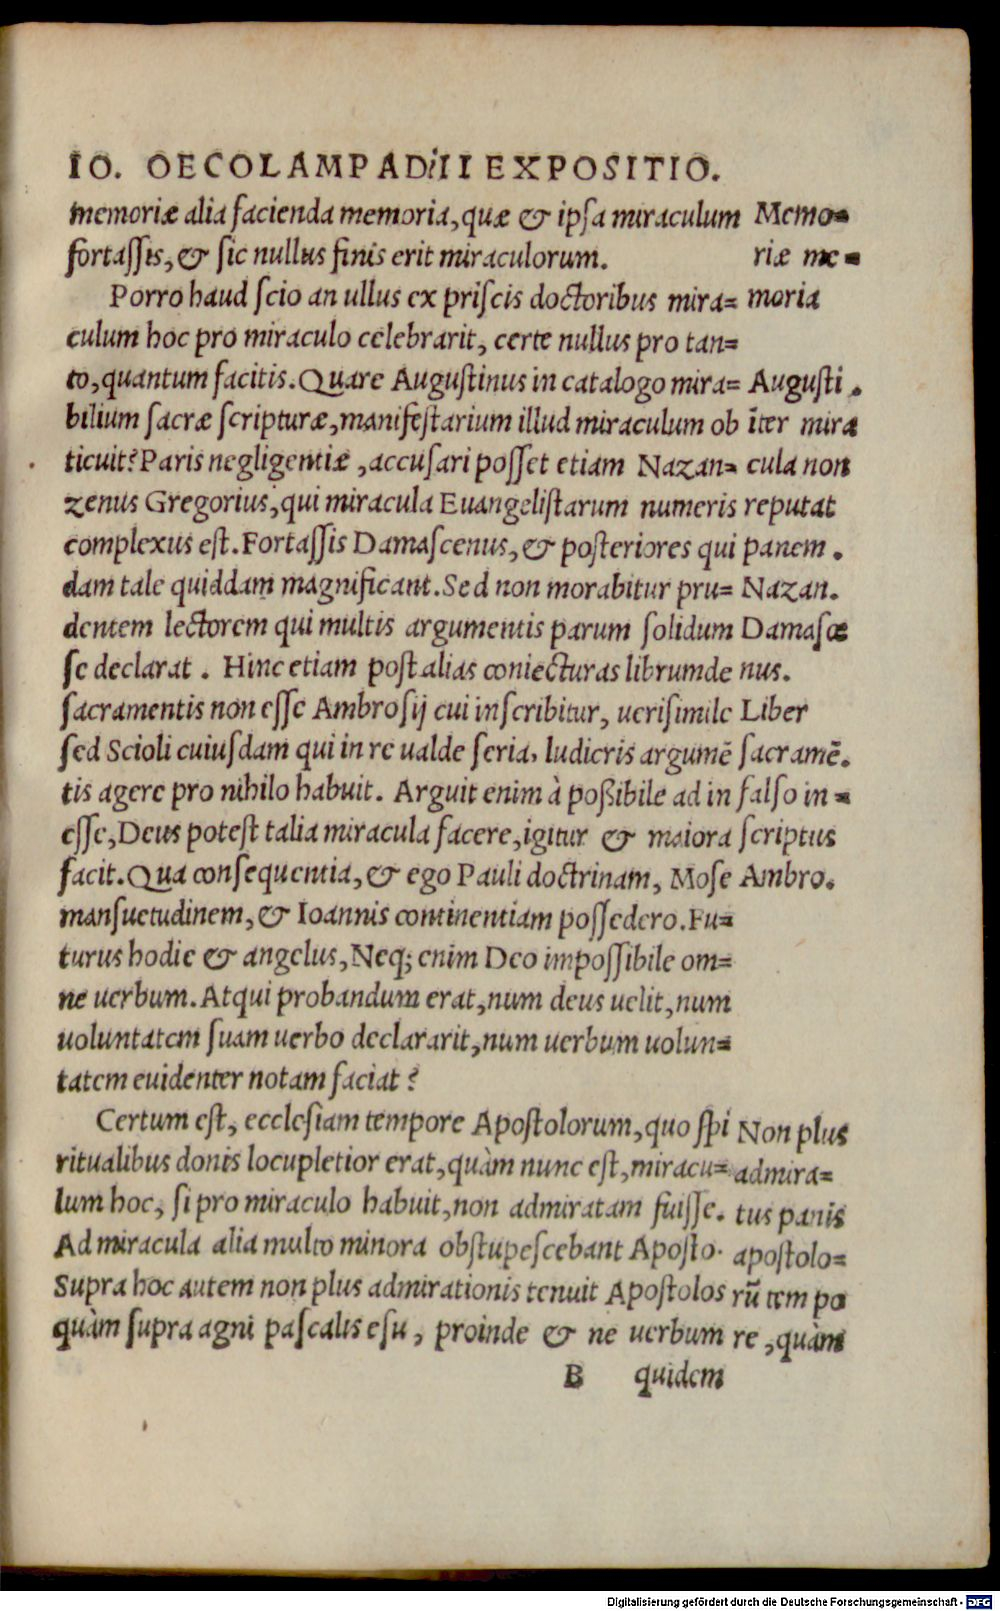 IO. OECOLAMPADiII EXPOSITIO.
memoriæ alia facienda memoria, quæ & ipsa miraculum
fortassis, & sic nullus finis erit miraculorum.
Porro haud scio an ullus ex priscis doctoribus mira=
culum hoc pro miraculo celebrarit, certe nullus pro tan=
to, quantum facitis. Quare Augustinus in catalogo mira=
bilium sacræ scripturæ, manifestarium illud miraculum ob
ticuit? Paris negligentiæ, accusari posset etiam Nazan=
zenus Gregorius, qui miracula Euangelistarum numeris
complexus est. Fortassis Damascenus, & posteriores qui
dam tale quiddam magnificant. Sed non morabitur pru=
dentem lectorem qui multis argumentis parum solidum
se declarat. Hinc etiam post alias coniecturas librum de
sacramentis non esse Ambrosij cui inscribitur, uerisimile
sed Scioli cuiusdam qui in re ualde seria, ludicris argumē
tis agere pro nihilo habuit. Arguit enim à poßibile ad in
esse, Deus potest talia miracula facere, igitur & maiora
facit. Qua consequentia, & ego Pauli doctrinam, Mose
mansuetudinem, & Ioannis continentiam possedero. Fu=
turus hodie & angelus, Neq; enim Deo impossibile om=
ne uerbum. Atqui probandum erat, num deus uelit, num
uoluntatem suam uerbo declararit, num uerbum uolun=
tatem euidenter notam faciat?
Certum est, ecclesiam tempore Apostolorum, quo spi
ritualibus donis locupletior erat, quàm nunc est, miracu=
lum hoc, si pro miraculo habuit, non admiratam fuisse.
Ad miracula alia multo minora obstupescebant Aposto.
Supra hoc autem non plus admirationis tenuit Apostolos
quàm supra agni pascalis esu, proinde & ne uerbum
B quidem
Memo=
riæ me=
moria
Augusti.
īter mira
cula non
reputat
panem.
Nazan.
Damasce
nus.
Liber
sacramē.
falso in=
scriptus
Ambro.
Non plus
admira=
tus panis
apostolo=
rū tempo
re, quàm
Digitalisierung gefördert durch die Deutsche Forschungsgemeinschaft - DFG